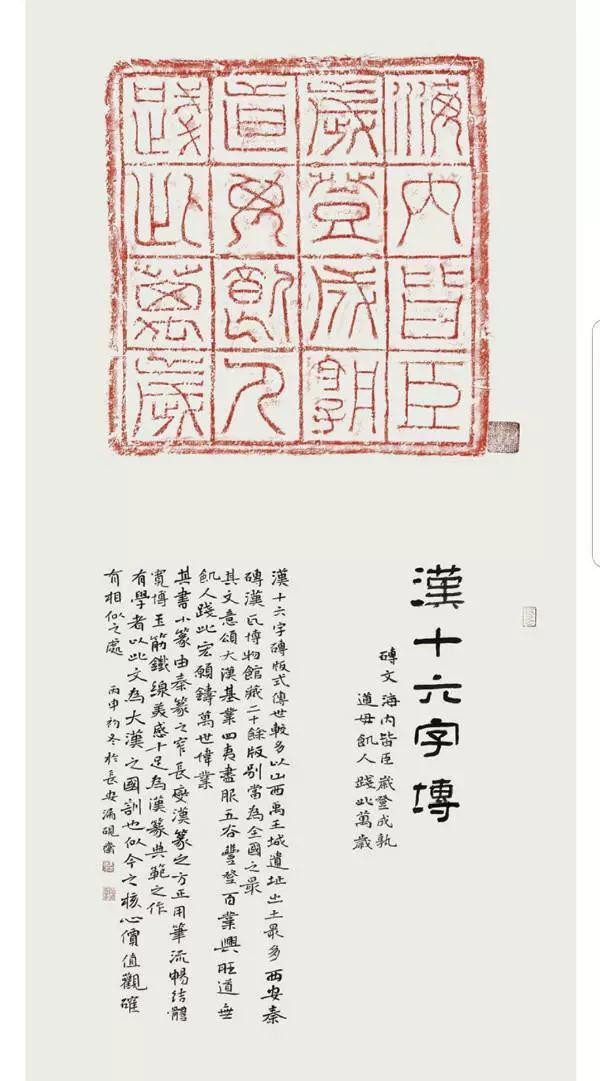 海内皆臣
歲登成孰
道毋飢人
踐此萬歲
漢十六字塼
磚文 海内皆臣 歲登成孰
道毋飢人 踐此萬歲
漢十六字磚版式傳世較多以山西禹王城遺址出土最多西安秦
磚漢瓦博物館藏二十餘版別當為全國之最
其文意頌大漢基業四夷盡服五谷豐登百業興旺道無
飢人踐此宏願鑄萬世偉業
其書小篆由秦篆之窄長變漢篆之方正用筆流暢結體
寬博玉筋鐵線美感十足為漢篆典範之作
有學者以此文為大漢之國訓也似今之核心價值觀確
有相似之處 丙申初冬於長安漏硯齋